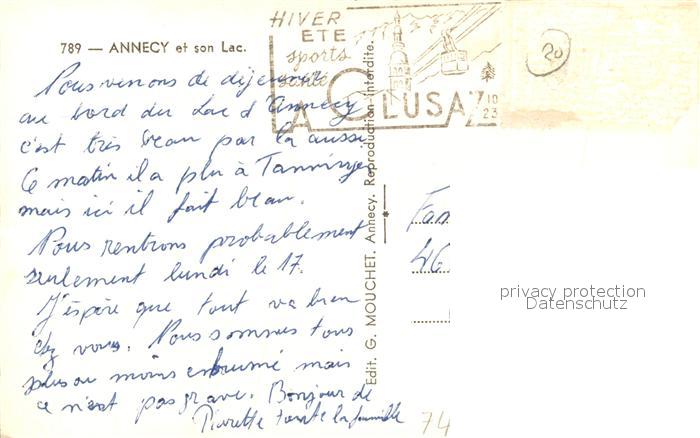 HIVER
ETE
sports
santé
LA CLUSAZ
10
23
20
789 — ANNECY et son Lac.
Nous venons de dejeuner
au bord du Lac d'Annecy
c'est très beau par la aussi
Ce matin il a plu à Tanninge
mais ici il fait beau.
Nous rentrons probablement
seulement lundi le 17.
J'éspère que tout va bien
chez vous. Nous sommes tous
plus ou moins enrhumé mais
ce n'est pas grave. Bonjour de
Pierrette toute la famille
Edit. G. MOUCHET. Annecy. Reproduction Interdite.
Fam
46
privacy protection
Datenschutz
74